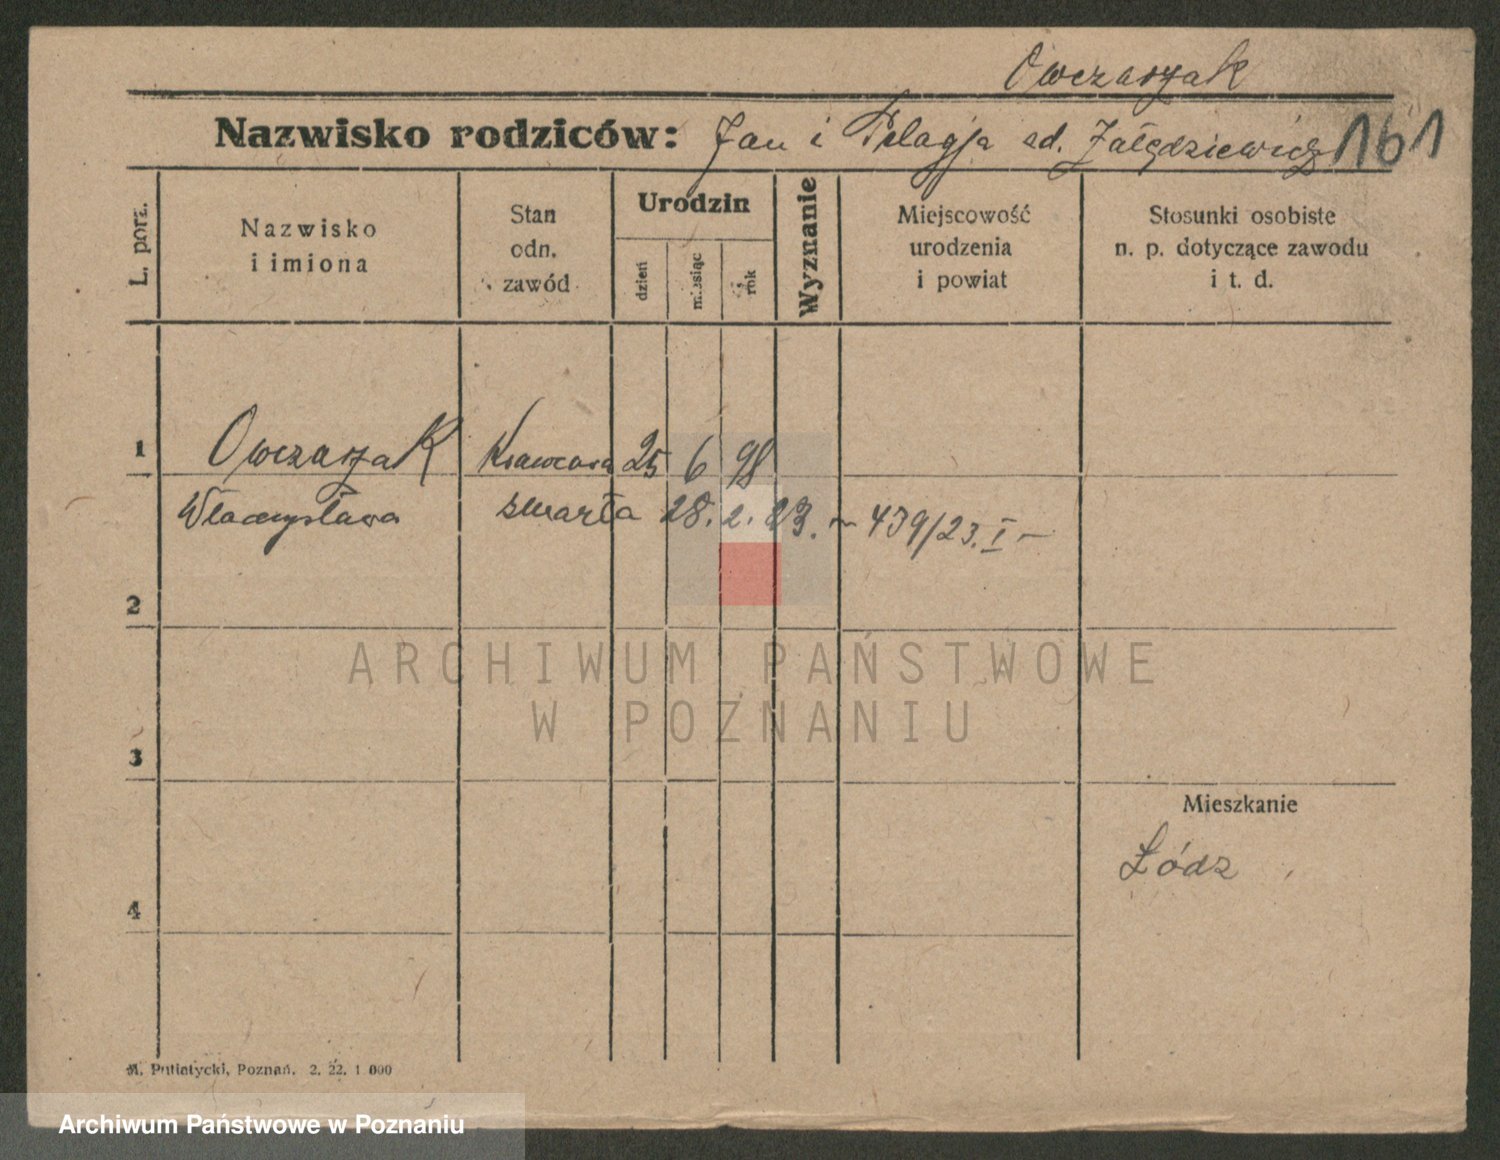 Owczarzak
Nazwisko rodziców: Jan i Pelagja od. Załędziewicz 161
L. porz.
Nazwisko
i imiona
Stan
odn.
zawód
Urodzin
dzień
miesiąc
rok
Wyznanie
Miejscowość
urodzenia
i powiat
Stosunki osobiste
n. p. dotyczące zawodu
i t. d.
1 Owczarzak Krawcowa 25 6 98
Władysława zmarła 28. 2. 23. – 439/23. I –
2
3
4
Mieszkanie
Łódz
ARCHIWUM PAŃSTWOWE
W POZNANIU
M. Putiatycki, Poznań. 2. 22. 1 000
Archiwum Państwowe w Poznaniu